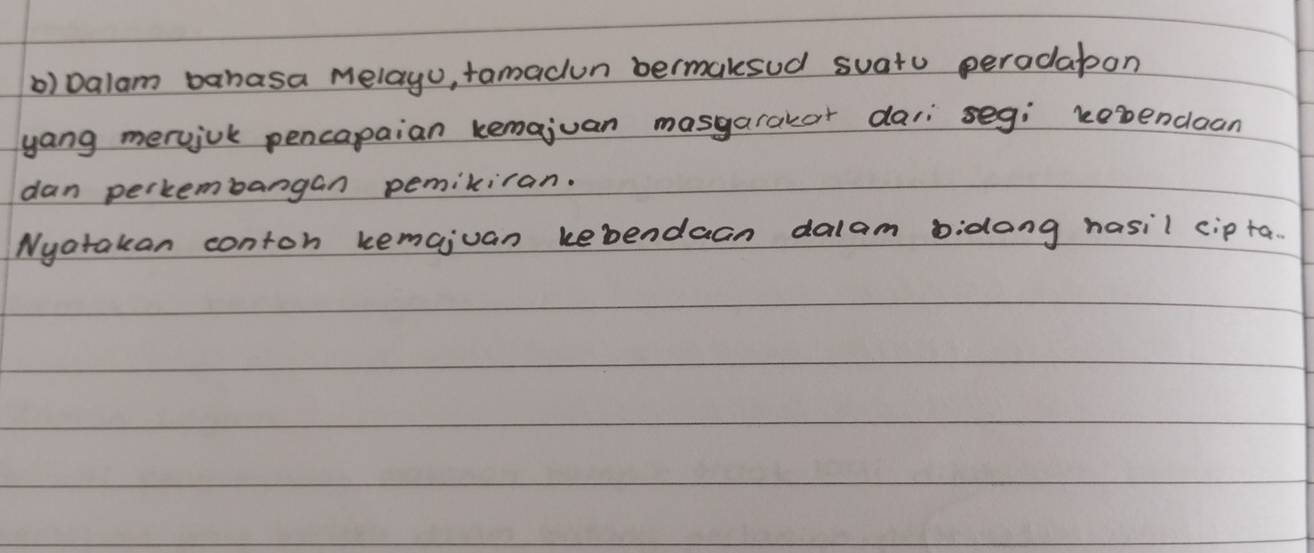 b) Dalam bahasa Melayu, tamadun bermaksud suatu peradaban
yang merujuk pencapaian kemajuan masyarakat dari segi kebendaan
dan perkembangan pemikiran.
Nyatakan contoh kemajuan kebendaan dalam bidang hasil cipta..